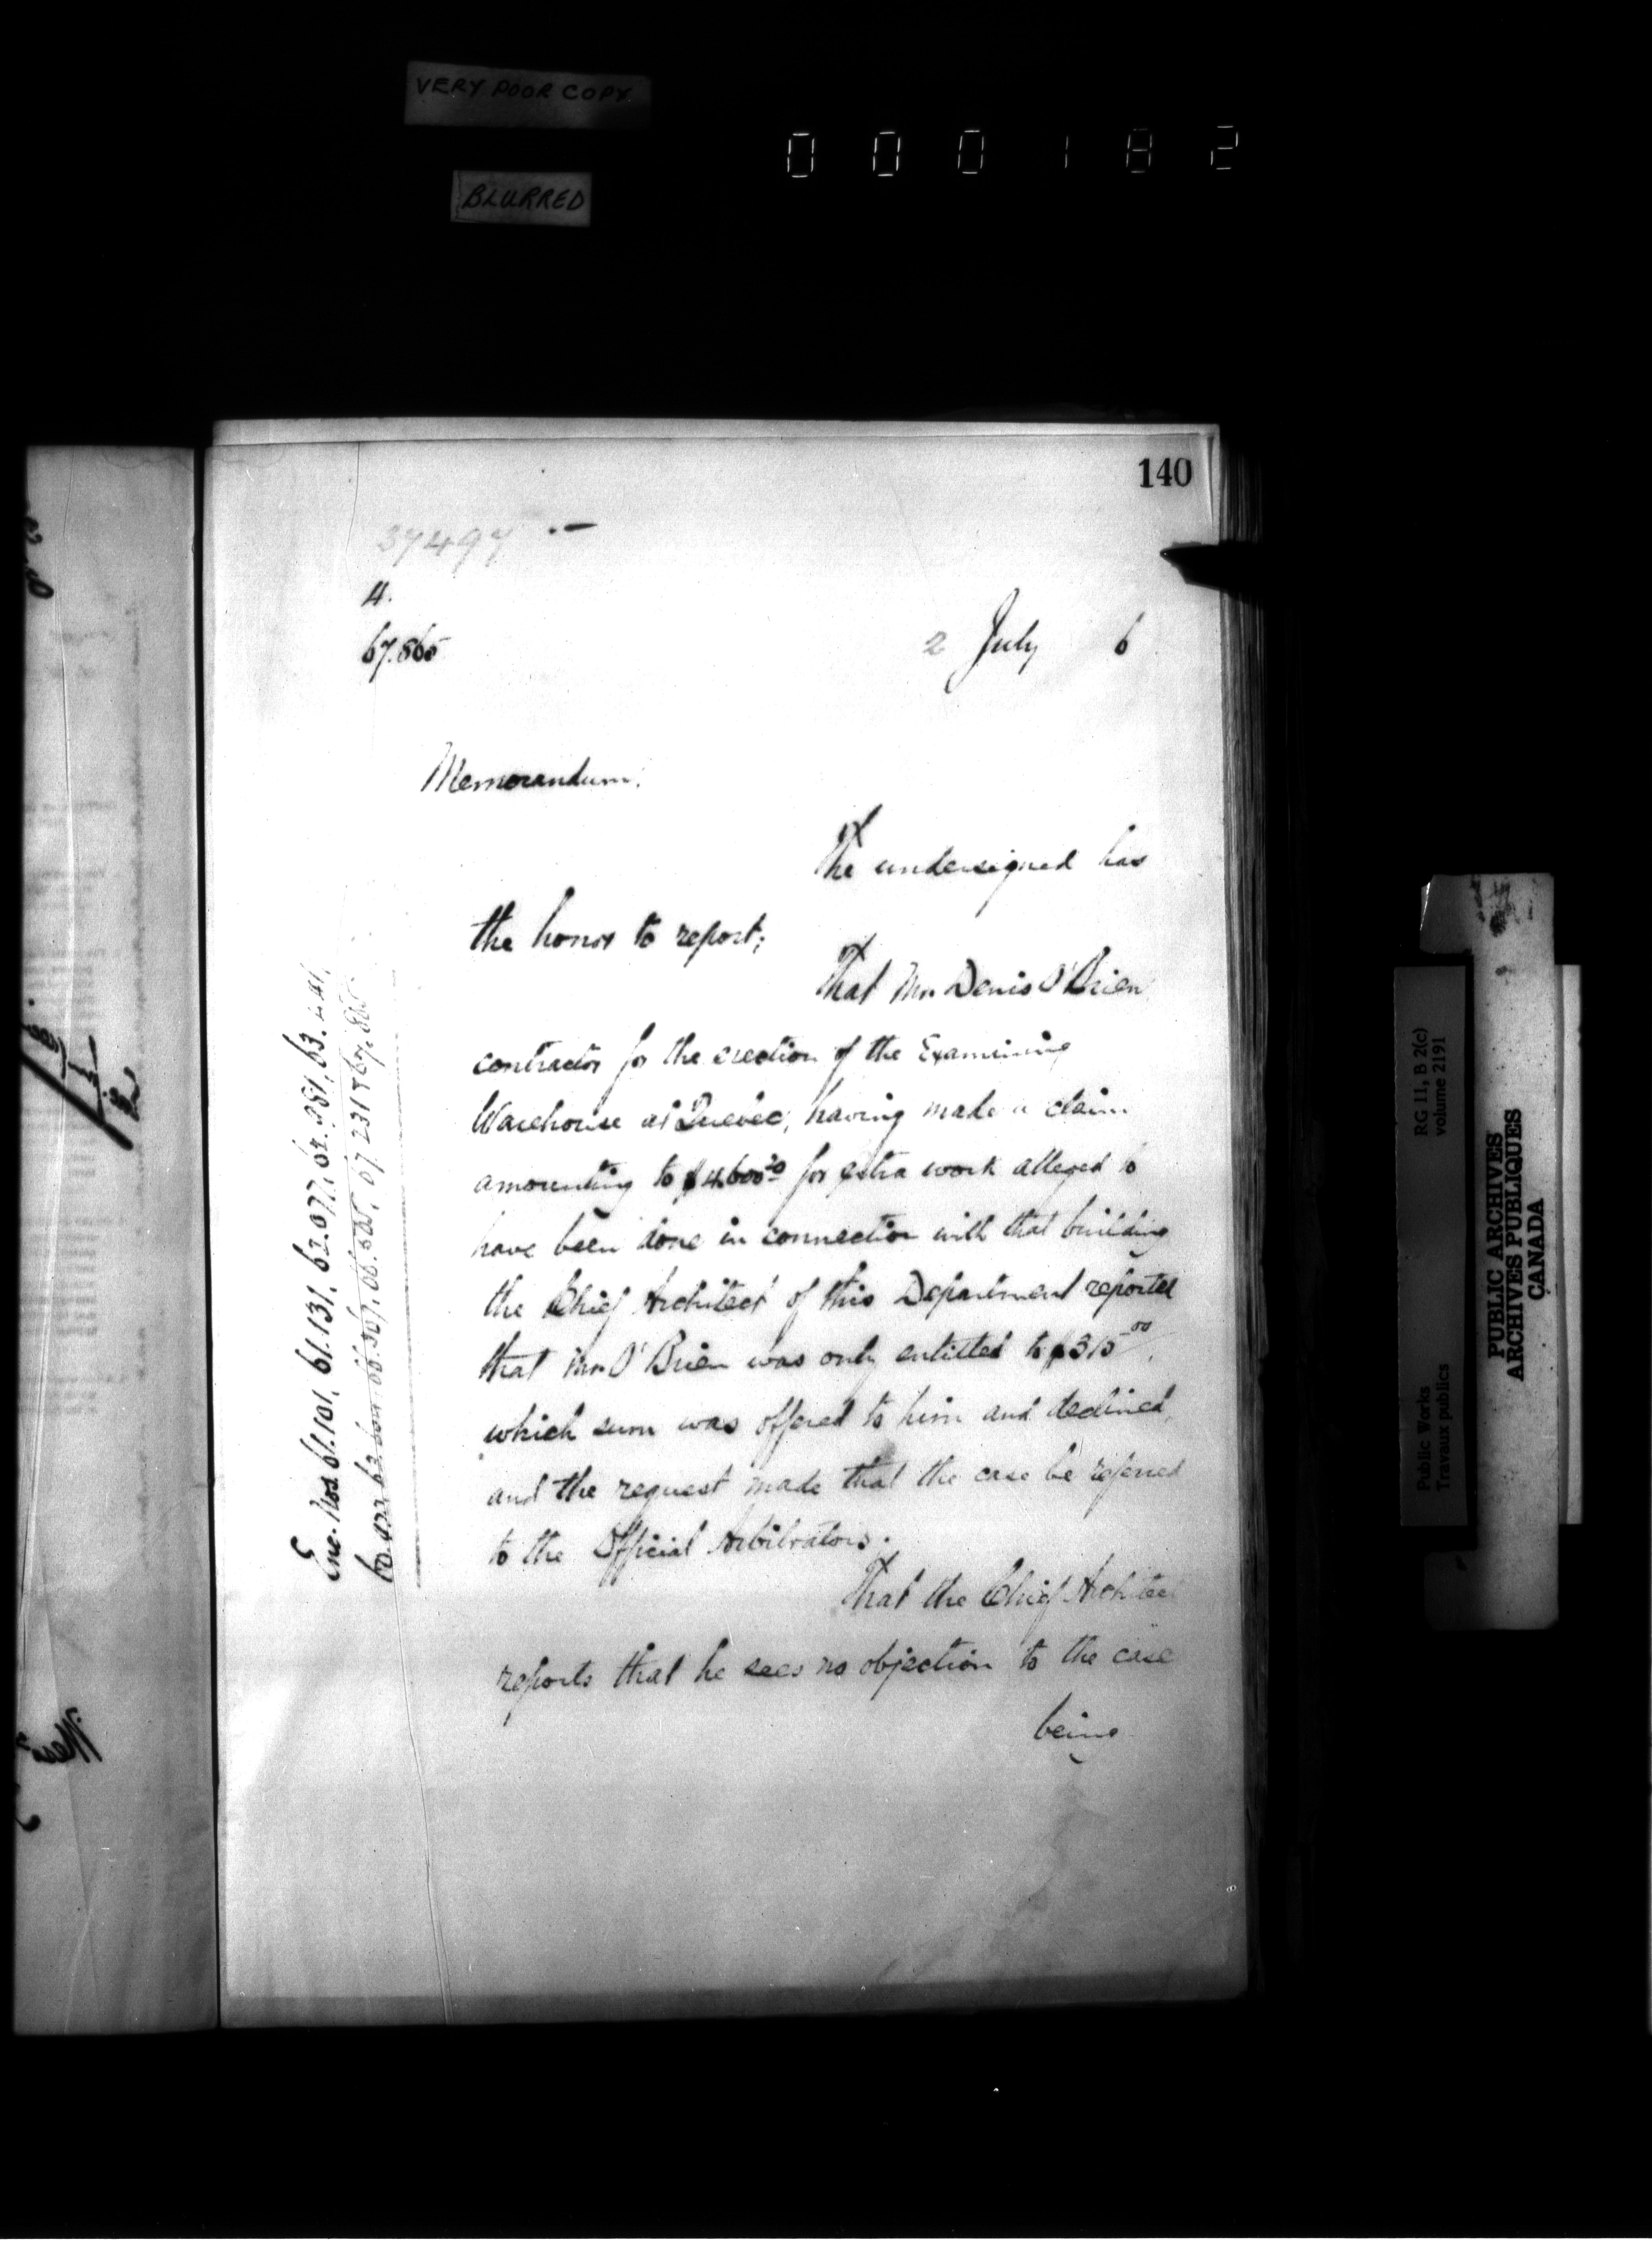 VERY POOR COPY
BLURRED
000182
140
37497
4.
67.865
2 July 6
Memorandum.
The undersigned has
the honor to report;
That Mr. Denis O'Brien
contractor for the erection of the Examining
Warehouse at Quebec, having made a claim
amounting to for extra work alleged to
have been done in connection with that building
the Chief Architect of this Department reported
that Mr. O'Brien was only entitled to $315.00
which sum was offered to him and declined,
and the request made that the case be referred
to the Official Arbitrators.
That the Chief Architect
reports that he sees no objection to the case
being
Enc. Nos 61.101, 61.131, 62.077, 62.981, 63.441,
67.231 & 67.865
RG 11, B 2(c)
volume 2191
Public Works
Travaux publics
PUBLIC ARCHIVES
ARCHIVES PUBLIQUES
CANADA